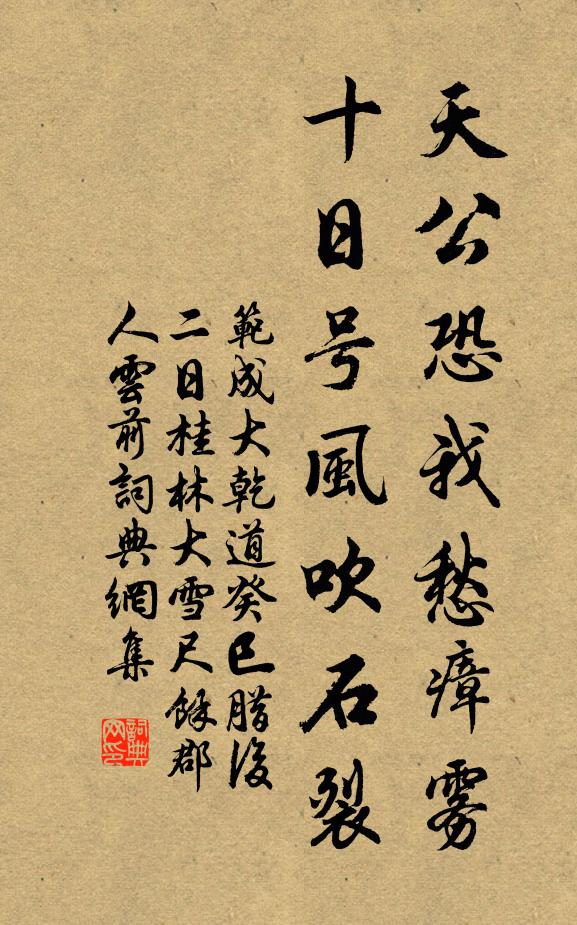 天公恐我愁瘴雾
十日号風吹石裂
範成大乾道癸巳腊後
二日桂林大雪尺餘郡
人雲前詞典網集
詞典
网印